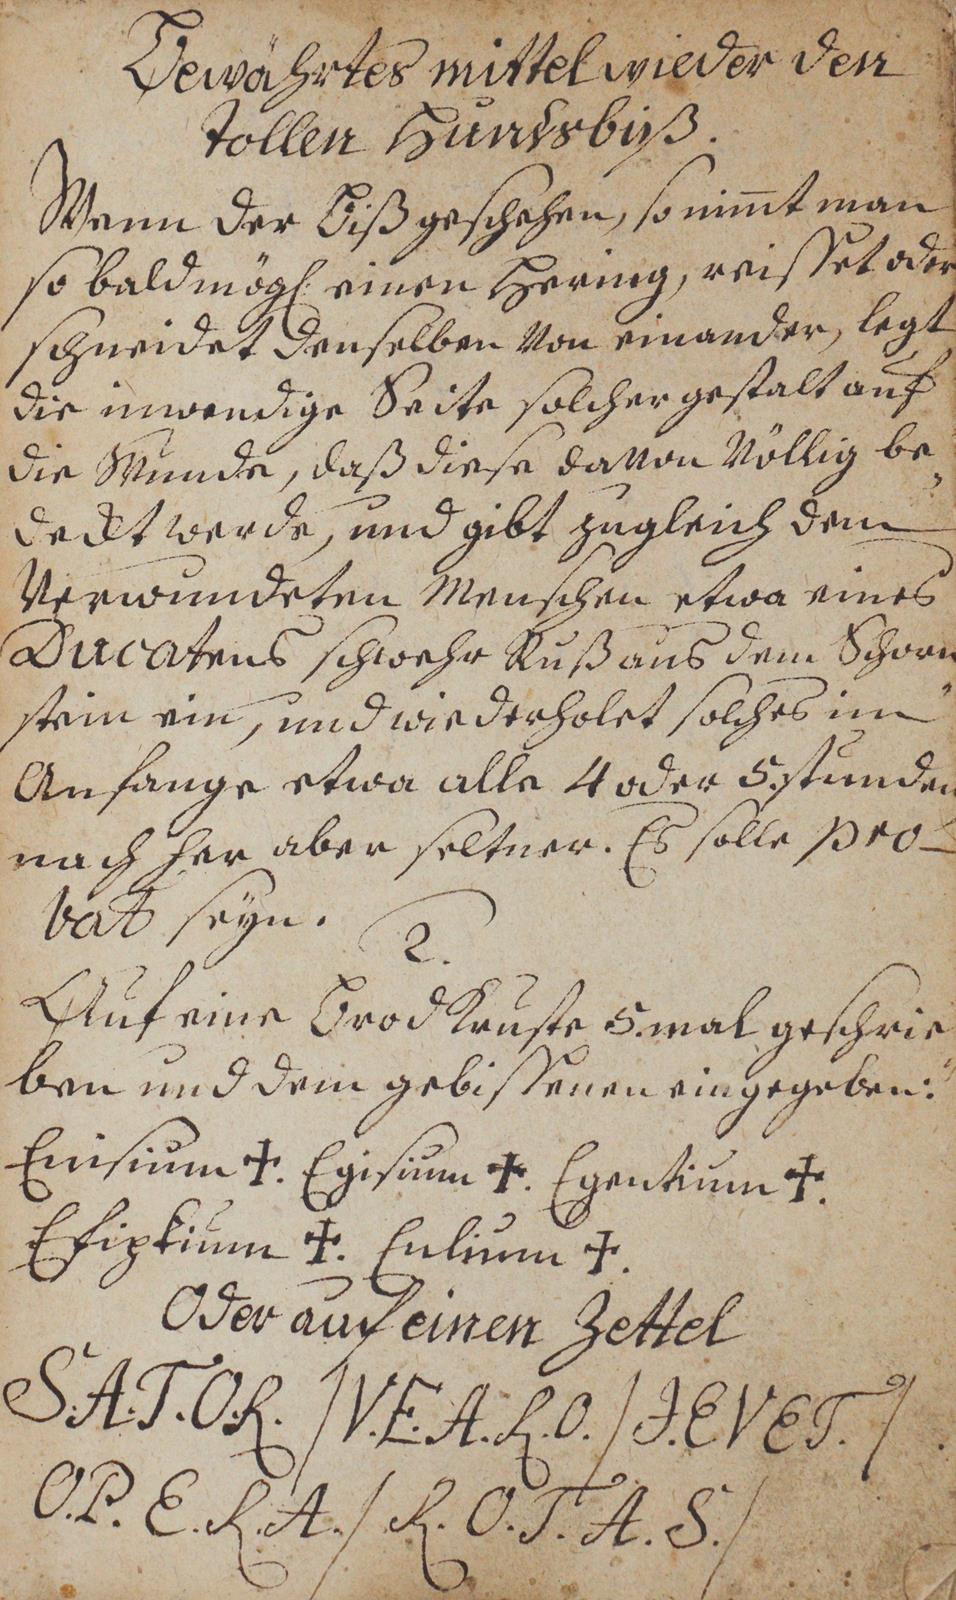 Bewährtes mittel wieder den
tollen Hundsbiß.
Wenn der Biß geschehen, so nim̄t man
so bald mögl. einen Hering, reisset oder
schneidet denselben von einander, legt
die inwendige Seite solcher gestalt auf
die Wunde, daß diese davon völlig be„
deckt werde, und gibt zugleich dem
Verwundeten Menschen etwa eines
Ducatens schwehr Ruß aus dem Schorn
stein ein, und wiederholet solches im
Anfange etwa alle 4 oder 5. stunden
nach her aber seltner. Es solle pro-
bat seyn.
2.
Auf eine Brod Kruste 5. mal geschrie„
ben und dem gebissenen eingegeben:
Enisium ✝. Egisium ✝. Egentium ✝.
Efiptium ✝. Enlium ✝.
Oder auf einen Zettel
S.A.T.O.R. / V.E.A.R.O. / J.EVET. /
O.P.E.R.A. / R.O.T.A.S. /